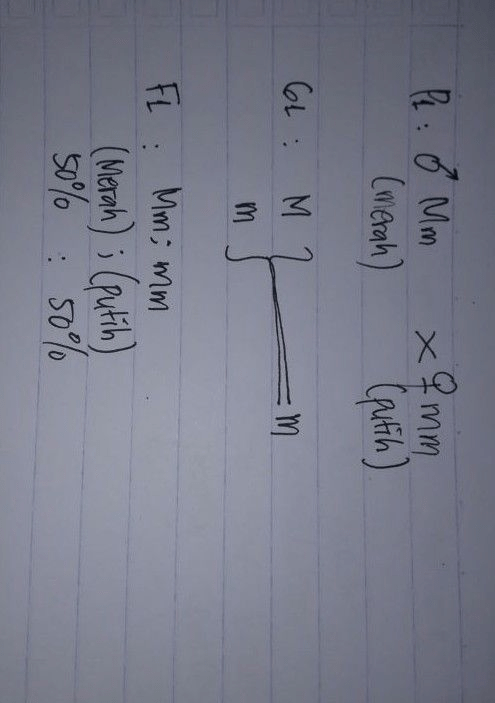 P1 : ♂ Mm × ♀ mm
(merah) (putih)
G1 : M } m
m
F1 : Mm : mm
(Merah) ; (putih)
50% : 50%